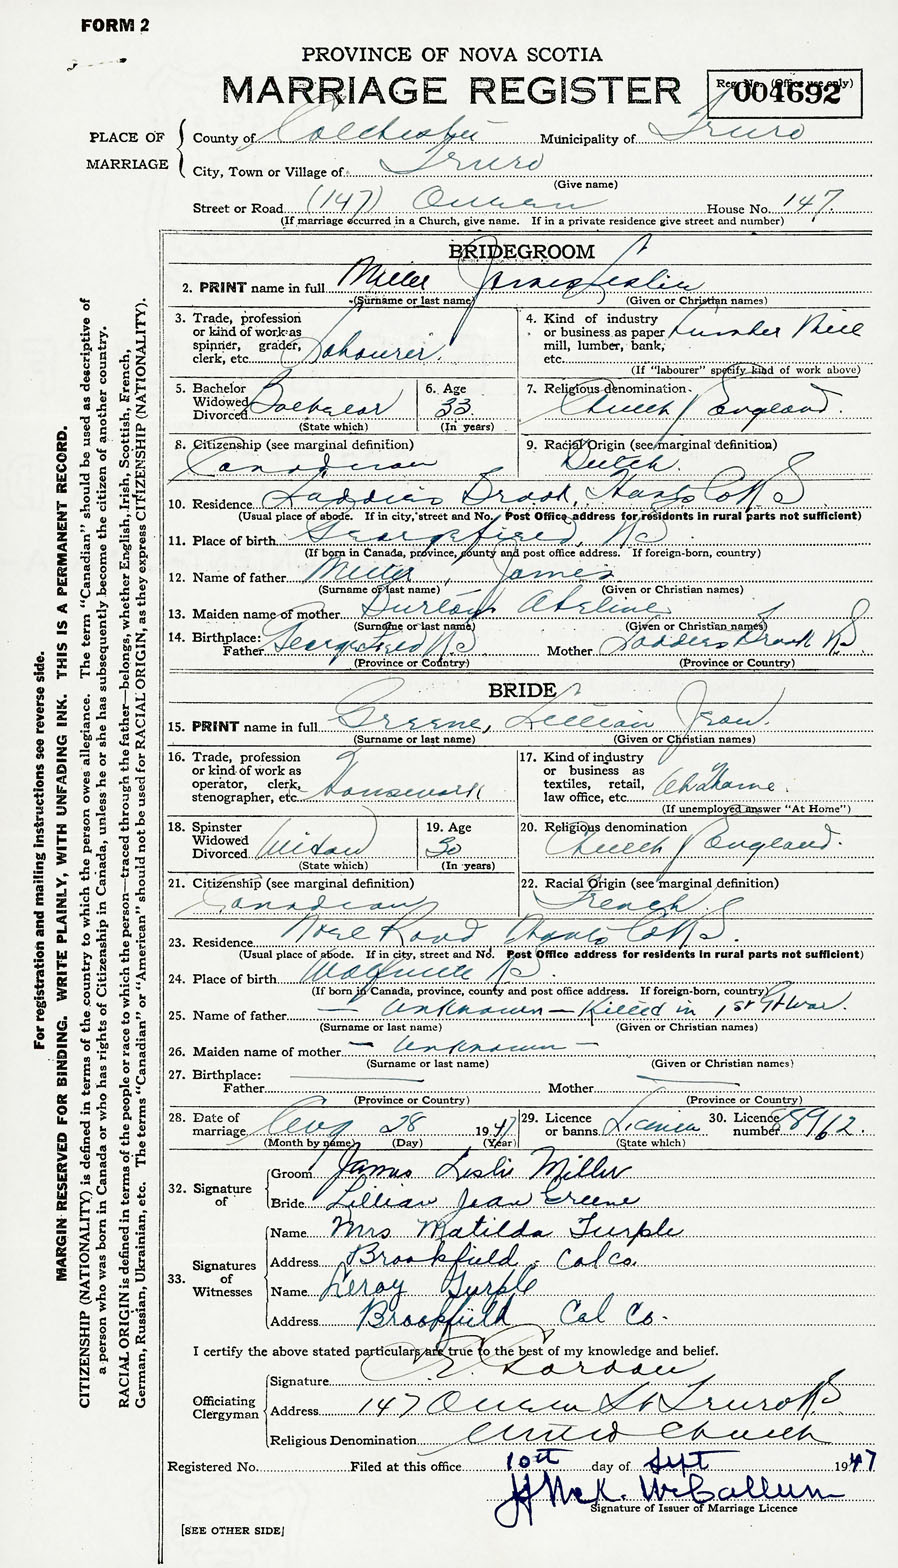 FORM 2
PROVINCE OF NOVA SCOTIA
MARRIAGE REGISTER
Reg. No. (Office use only)
004692
PLACE OF MARRIAGE
County of Colchester Municipality of Truro
City, Town or Village of Truro
(Give name)
Street or Road (147) Queen House No. 147
(If marriage occurred in a Church, give name. If in a private residence give street and number)
BRIDEGROOM
2. PRINT name in full Miller James Leslie
(Surname or last name) (Given or Christian names)
3. Trade, profession or kind of work as spinner, grader, clerk, etc. Labourer.
4. Kind of industry or business as paper mill, lumber, bank, etc. Lumber Mill
(If "labourer" specify kind of work above)
5. Bachelor Widowed Divorced Bachelor
(State which)
6. Age 33
(In years)
7. Religious denomination Church England.
8. Citizenship (see marginal definition)
Canadian
9. Racial Origin (see marginal definition)
Dutch.
10. Residence Brook, Hants Co N.S
(Usual place of abode. If in city, street and No. Post Office address for residents in rural parts not sufficient)
11. Place of birth Georgefield, N.S.
(If born in Canada, province, county and post office address. If foreign-born, country)
12. Name of father Miller, James
(Surname of last name) (Given or Christian names)
13. Maiden name of mother
(Surname or last name) (Given or Christian names)
14. Birthplace:
Father Georgefield N.S Mother Brook N.S
(Province or Country) (Province or Country)
BRIDE
15. PRINT name in full Greene, Lillian Jean.
(Surname or last name) (Given or Christian names)
16. Trade, profession or kind of work as operator, clerk, stenographer, etc. Housework
17. Kind of industry or business as textiles, retail, law office, etc. At home.
(If unemployed answer "At Home")
18. Spinster Widowed Divorced Widow
(State which)
19. Age 30
(In years)
20. Religious denomination
Church England.
21. Citizenship (see marginal definition)
Canadian
22. Racial Origin (see marginal definition)
French.
23. Residence Noel Road Hants Co N.S.
(Usual place of abode. If in city, street and No. Post Office address for residents in rural parts not sufficient)
24. Place of birth Wolfville N.S.
(If born in Canada, province, county and post office address. If foreign-born, country)
25. Name of father — Unknown — Killed in 1st Gt War.
(Surname or last name) (Given or Christian names)
26. Maiden name of mother — Unknown —
(Surname or last name) (Given or Christian names)
27. Birthplace:
Father Mother
(Province or Country) (Province or Country)
28. Date of marriage Aug 28 1947
(Month by name) (Day) (Year)
29. Licence or banns Licence
(State which)
30. Licence number 88962.
32. Signature of
Groom James Leslie Miller
Bride Lillian Jean Greene
33. Signatures of Witnesses
Name Mrs Matilda Turple
Address Brookfield, Col co.
Name Leroy Turple
Address Brookfield Col Co.
I certify the above stated particulars are true to the best of my knowledge and belief.
Officiating Clergyman
Signature Gordon
Address 147 Queen St Truro N.S
Religious Denomination United Church
Registered No. Filed at this office 10th day of Sept 1947
McK. McCallum
Signature of Issuer of Marriage Licence
[SEE OTHER SIDE]
For registration and mailing instructions see reverse side.
MARGIN RESERVED FOR BINDING. WRITE PLAINLY, WITH UNFADING INK. THIS IS A PERMANENT RECORD.
CITIZENSHIP (NATIONALITY) is defined in terms of the country to which the person owes allegiance. The term "Canadian" should be used as descriptive of
a person who was born in Canada or who has rights of Citizenship in Canada, unless he or she has subsequently become the citizen of another country.
RACIAL ORIGIN is defined in terms of the people or race to which the person—traced through the father—belongs, whether English, Irish, Scottish, French,
German, Russian, Ukrainian, etc. The terms "Canadian" or "American" should not be used for RACIAL ORIGIN, as they express CITIZENSHIP (NATIONALITY).